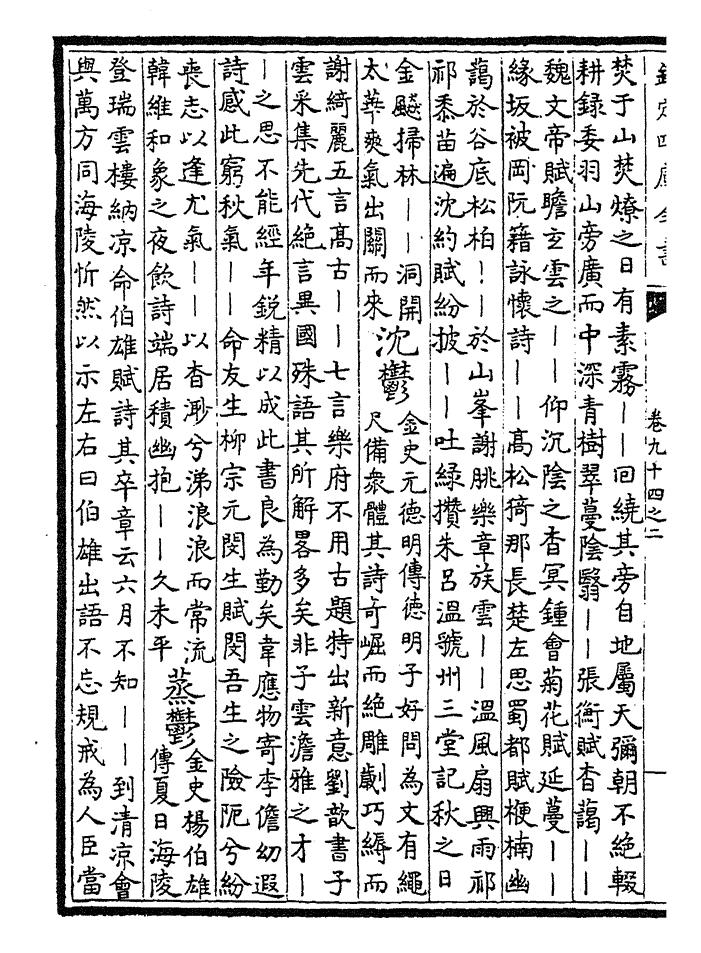 欽定四庫全書
卷九十四之二
焚于山焚燎之日有素霧——回繞其旁自地屬天彌朝不絶輟
耕録委羽山旁廣而中深青樹翠蔓陰翳——張衡賦杳藹——
魏文帝賦瞻玄雲之——仰沉陰之杳冥鍾會菊花賦延蔓——
緣坂被岡阮籍詠懷詩——髙松猗那長楚左思蜀都賦楩楠幽
藹於谷底松柏——於山峯謝朓樂章族雲——温風扇興雨祁
祁黍苗遍沈約賦紛披——吐緑攢朱吕温虢州三堂記秋之日
金飈掃林——洞開
太華爽氣出關而來
沈鬱
金史元德明傳德明子好問為文有繩
尺備衆體其詩奇崛而絶雕劌巧縟而
謝綺麗五言髙古——七言樂府不用古題特出新意劉歆書子
雲采集先代絶言異國殊語其所解畧多矣非子雲澹雅之才—
—之思不能經年鋭精以成此書良為勤矣韋應物寄李儋幼遐
詩感此窮秋氣——命友生柳宗元閔生賦閔吾生之險阨兮紛
喪志以逢尤氣——以杳渺兮涕浪浪而常流
韓維和象之夜飲詩端居積幽抱——久未平
蒸鬱
金史楊伯雄
傳夏日海陵
登瑞雲樓納凉命伯雄賦詩其卒章云六月不知——到清凉會
與萬方同海陵忻然以示左右曰伯雄出語不忘規戒為人臣當